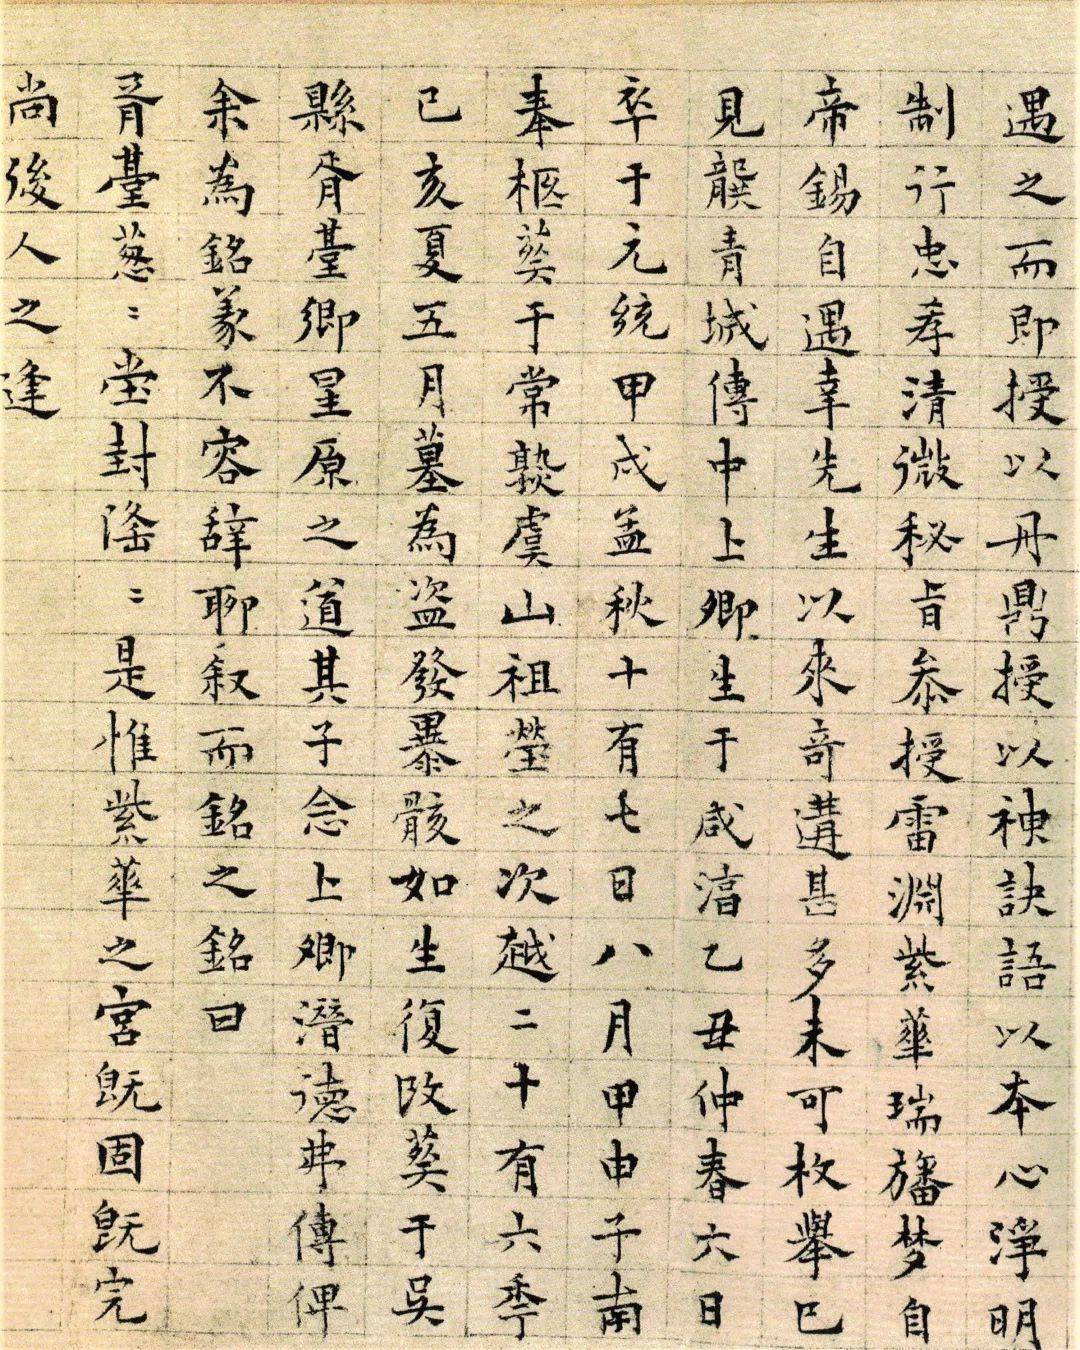 遇之而即授以丹鼎授以神訣語以本心淨明
制行忠孝清微秘旨叅授雷淵紫華瑞旛梦自
帝錫自遇幸先生以來奇遘甚多未可枚舉已
見龔青城傳中上卿生于咸淳乙丑仲春六日
卒于元統甲戌孟秋十有七日八月甲申子南
奉柩葬于常熟虞山祖塋之次越二十有六季
已亥夏五月墓為盜發暴骸如生復改葬于吳
縣胥臺鄉星原之道其子念上卿潛德弗傳俾
余為銘義不容辭聊叙而銘之銘曰
胥臺葱〻堂封窿〻是惟紫華之宮既固既完
尚後人之逢